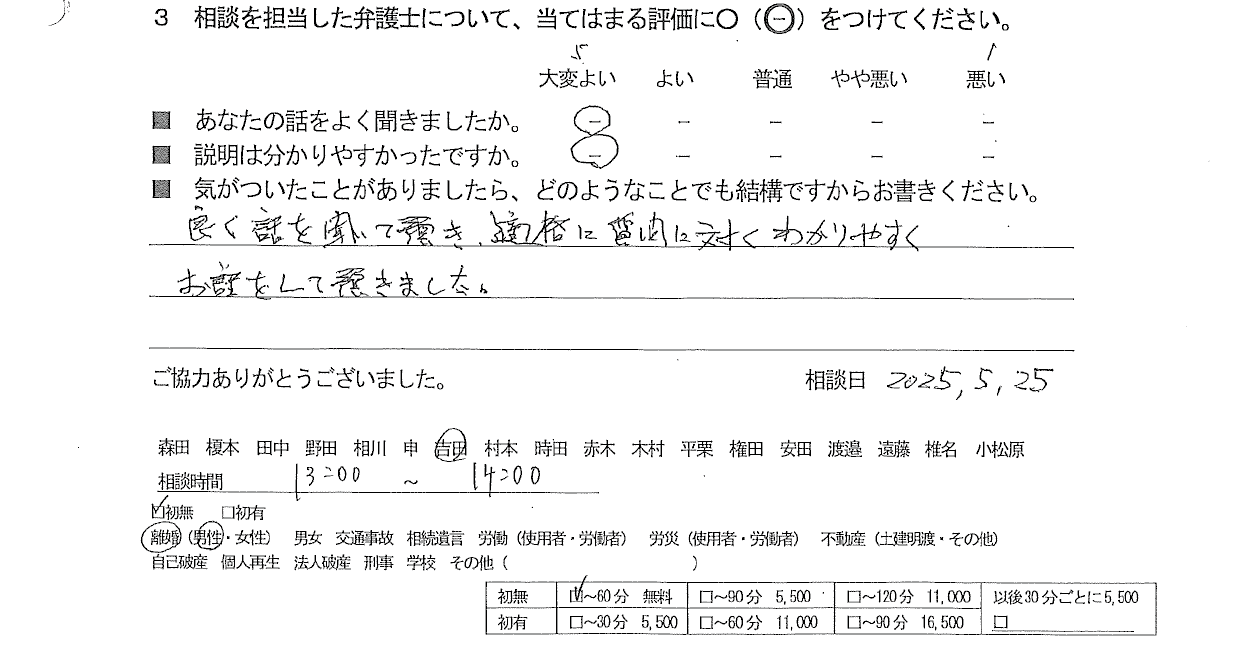 3 相談を担当した弁護士について、当てはまる評価に○(㊀)をつけてください。
5 1
大変よい よい 普通 やや悪い 悪い
■ あなたの話をよく聞きましたか。 － － － － －
■ 説明は分かりやすかったですか。 － － － － －
■ 気がついたことがありましたら、どのようなことでも結構ですからお書きください。
良く話を聞いて頂き、適格に質問に対くわかりやすく
お話をして頂きました。
ご協力ありがとうございました。 相談日 2025,5,25
森田 榎本 田中 野田 相川 申 吉田 村本 時田 赤木 木村 平栗 権田 安田 渡邉 遠藤 椎名 小松原
相談時間 13:00 ~ 14:00
☑初無 □初有
離婚（男性・女性） 男女 交通事故 相続遺言 労働（使用者・労働者） 労災（使用者・労働者） 不動産（土建明渡・その他）
自己破産 個人再生 法人破産 刑事 学校 その他（ ）
初無 ☑～60分 無料 □～90分 5,500 □～120分 11,000 以後30分ごとに5,500
初有 □～30分 5,500 □～60分 11,000 □～90分 16,500 □